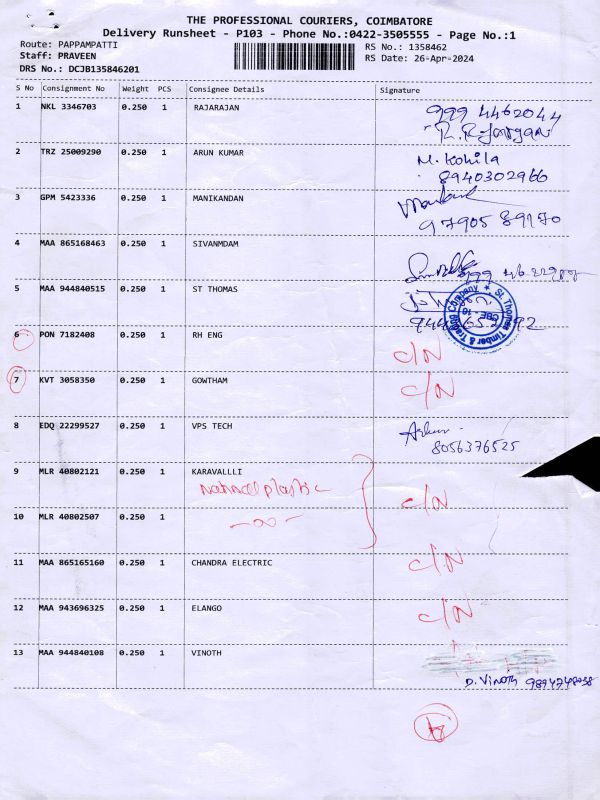 THE PROFESSIONAL COURIERS, COIMBATORE
Delivery Runsheet - P103 - Phone No.:0422-3505555 - Page No.:1
Route: PAPPAMPATTI
Staff: PRAVEEN
DRS No.: DCJB135846201
RS No.: 1358462
RS Date: 26-Apr-2024
S No Consignment No Weight PCS Consignee Details Signature
1 NKL 3346703 0.250 1 RAJARAJAN 999 4462044
2 TRZ 25009290 0.250 1 ARUN KUMAR M. Kokila
8940302966
3 GPM 5423336 0.250 1 MANIKANDAN
97905 89170
4 MAA 865168463 0.250 1 SIVANMDAM
5 MAA 944840515 0.250 1 ST THOMAS
St. Thomas Timber & Trading Company
6 PON 7182408 0.250 1 RH ENG C/N
7 KVT 3058350 0.250 1 GOWTHAM C/N
8 EDQ 22299527 0.250 1 VPS TECH
8056376525
9 MLR 40802121 0.250 1 KARAVALLLI
plastic C/N
10 MLR 40802507 0.250 1
11 MAA 865165160 0.250 1 CHANDRA ELECTRIC C/N
12 MAA 943696325 0.250 1 ELANGO C/N
13 MAA 944840108 0.250 1 VINOTH
D. Vinoth